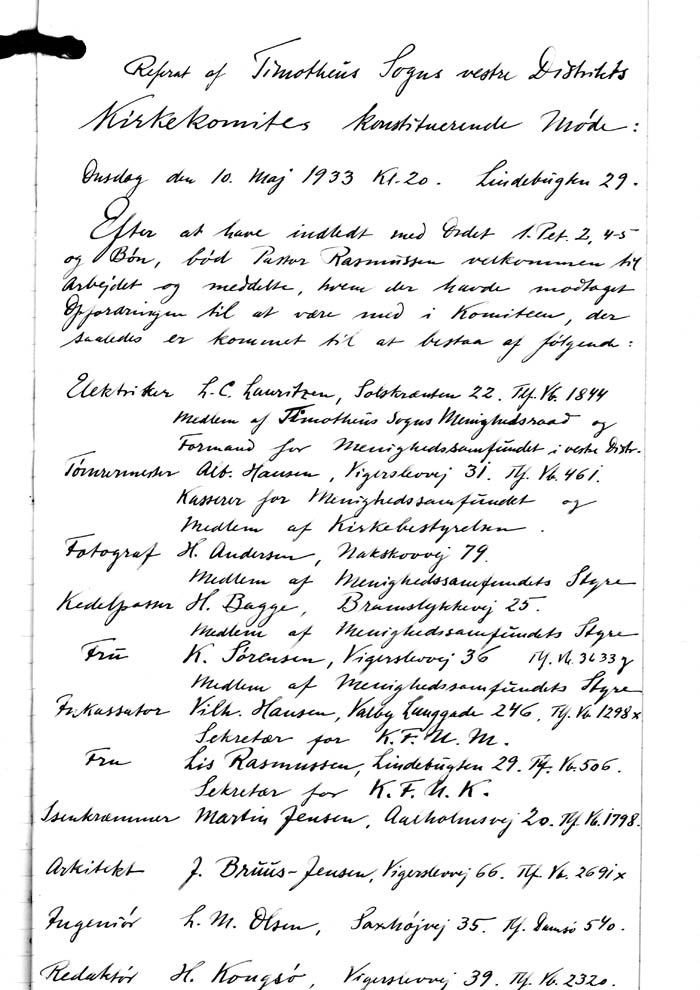 Referat af Timotheus Sogns vestre Distrikts
Kirkekomites konstituerende Møde:
Onsdag den 10. Maj 1933 Kl. 20. Lindebugten 29.
Efter at have indledt med Ordet 1. Pet. 2, 4-5
og Bøn, bød Pastor Rasmussen velkommen til
Arbejdet og meddelte, hvem der havde modtaget
Opfordringen til at være med i Komiteen, der
saaledes er kommet til at bestaa af følgende:
Elektriker L. C. Lauritzen, Solskrænten 22. Tlf. Vb. 1844
Medlem af Timotheus Sogns Menighedsraad og
Formand for Menighedssamfundet i vestre Distr.
Tømrermester Alb. Hansen, Vigerslevvej 31. Tlf. Vb. 461.
Kasserer for Menighedssamfundet og
Medlem af Kirkebestyrelsen.
Fotograf H. Andersen, Nakskovvej 79.
Medlem af Menighedssamfundets Styre
Kedelpasser H. Bagge, Bramslykkevej 25.
Medlem af Menighedssamfundets Styre
Fru K. Sørensen, Vigerslevvej 36 Tlf. Vb. 3633y
Medlem af Menighedssamfundets Styre
Inkassator Vilh. Hansen, Valby Langgade 246, Tlf. Vb. 1298x
Sekretær for K.F.U.M.
Fru Lis Rasmussen, Lindebugten 29. Tlf. Vb. 506.
Sekretær for K.F.U.K.
Isenkræmmer Martin Jensen, Aalholmsvej 20. Tlf. Vb. 1798.
Arkitekt J. Bruus-Jensen, Vigerslevvej 66. Tlf. Vb. 2691x
Ingeniør L. M. Olsen, Saxhøjvej 35. Tlf. Damsø 540.
Redaktør H. Kongsø, Vigerslevvej 39. Tlf. Vb. 2320.